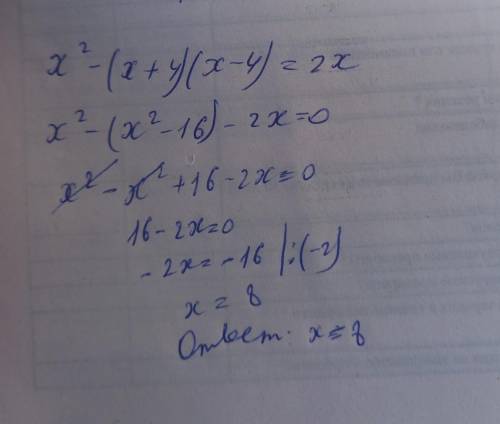 x² - (x + 4)(x - 4) = 2x
x² - (x² - 16) - 2x = 0
x² - x² + 16 - 2x = 0
16 - 2x = 0
- 2x = - 16 | : (-2)
x = 8
Ответ: x = 8